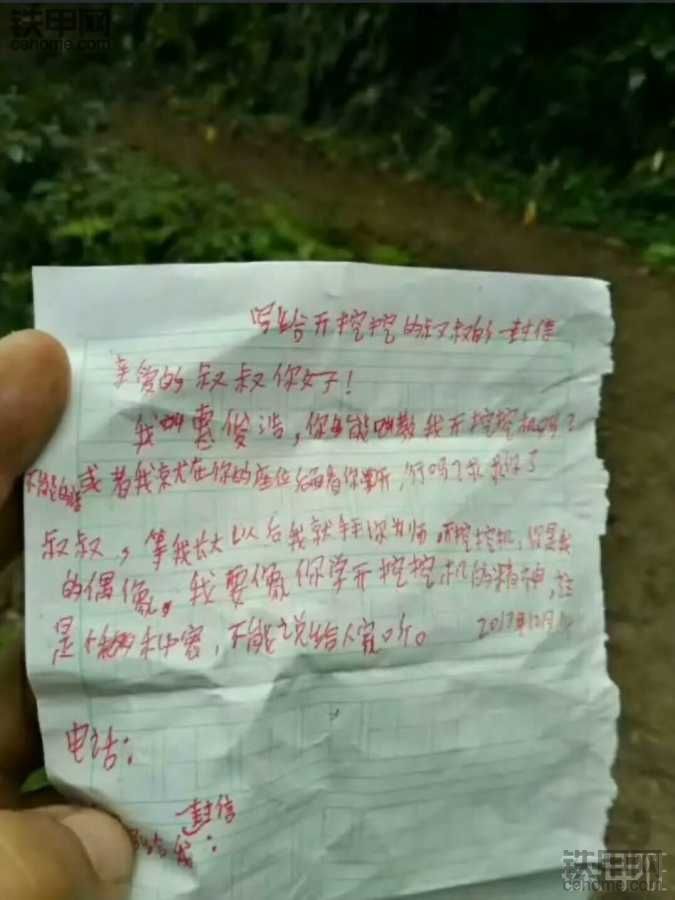 铁甲网
cehome.com
写给开挖挖的叔叔的一封信
亲爱的叔叔你好!
我叫惠俊浩,你能教我开挖挖机吗?
不能的话或者我就在你的座位后面看你开,行吗?求求你了
叔叔,等我长大以后我就拜你为师 挖挖机,你是我
的偶像,我要像你学开挖挖机的精神,这
是个秘密,不能说给人家听。 2017年12月
电话:
一封信
铁甲网
cehome.com